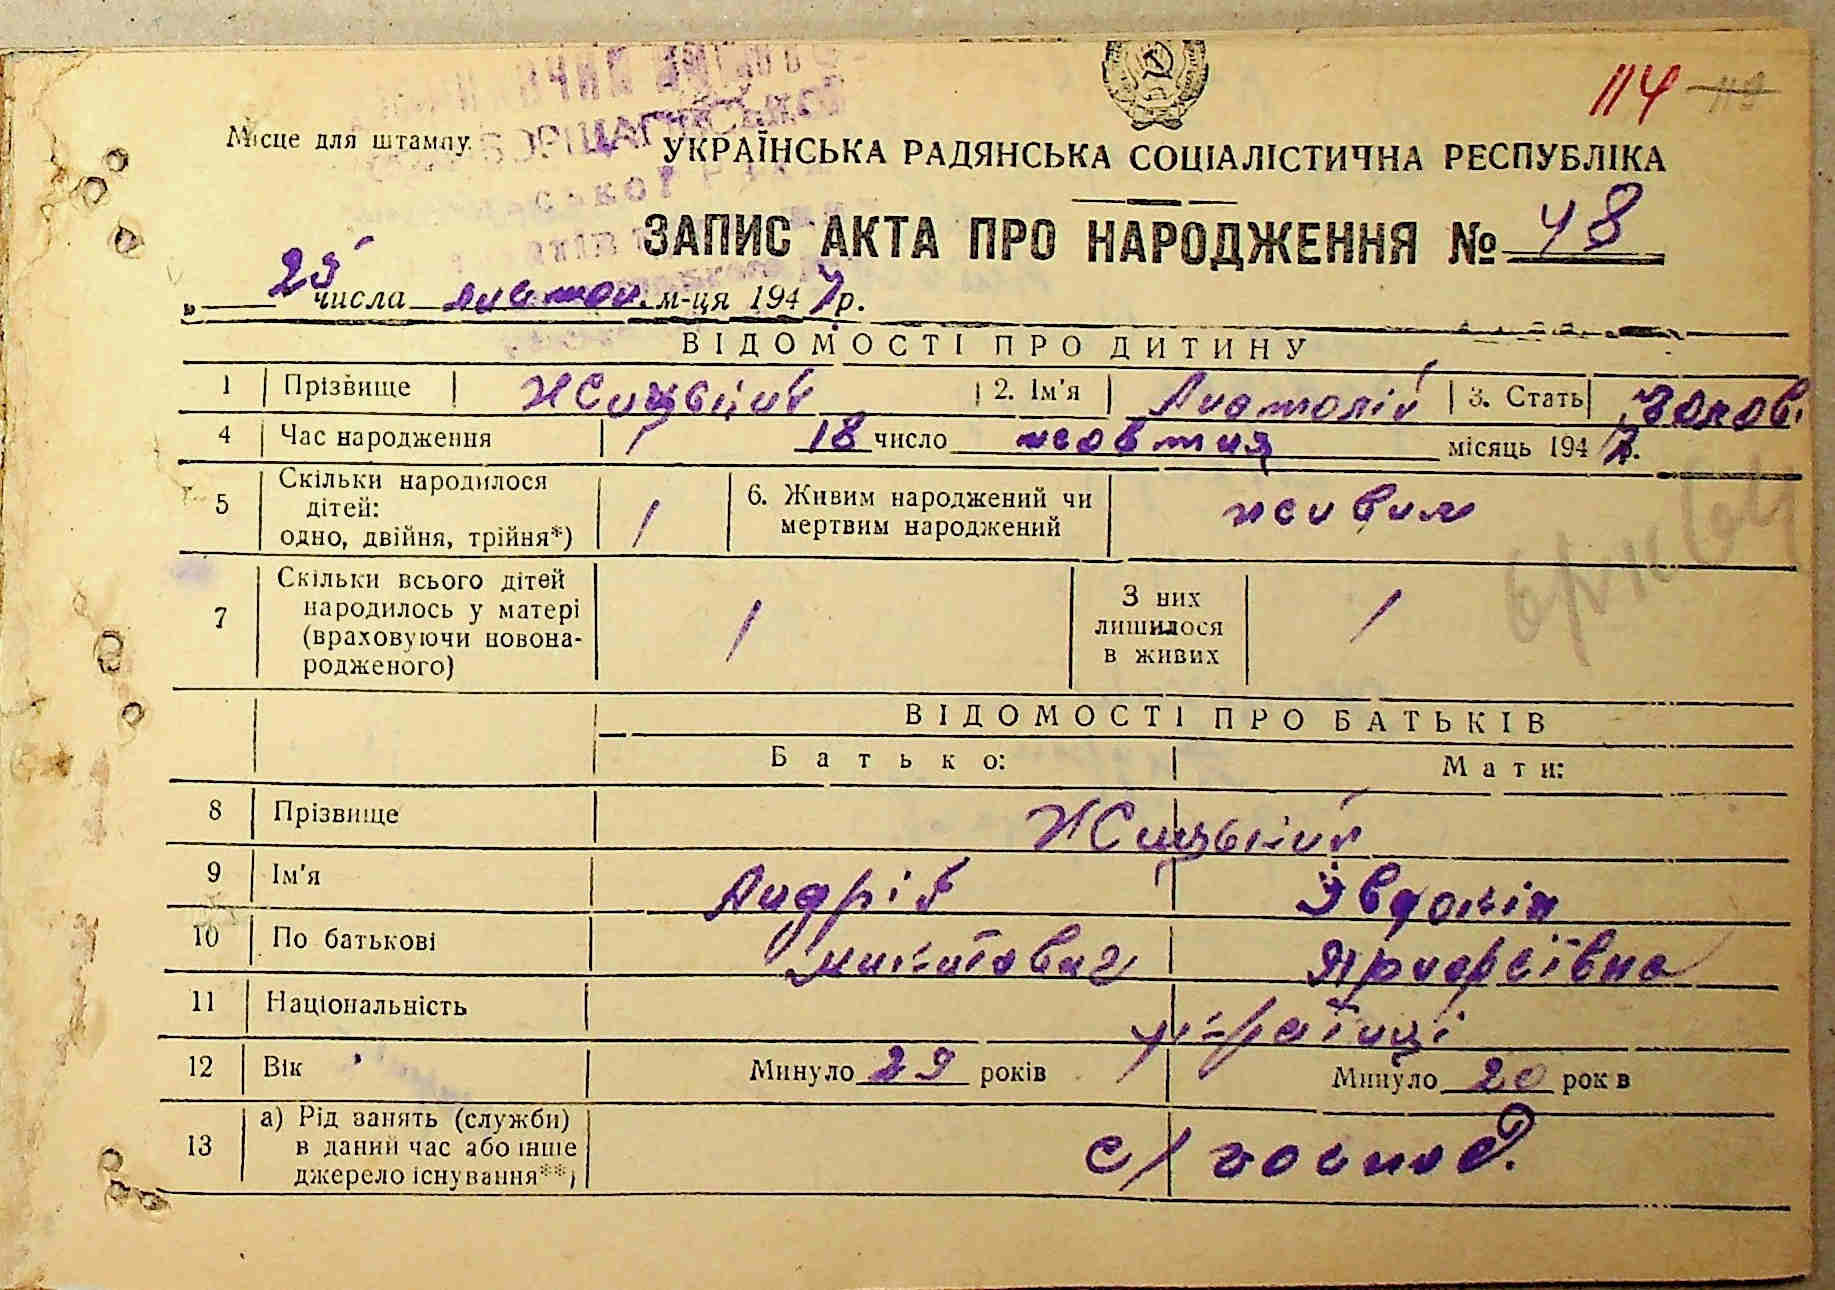 114 119
Місце для штампу.
УКРАЇНСЬКА РАДЯНСЬКА СОЦІАЛІСТИЧНА РЕСПУБЛІКА
ЗАПИС АКТА ПРО НАРОДЖЕННЯ № 48
„ 25 числа листоп. м-ця 1947 р.
ВІДОМОСТІ ПРО ДИТИНУ
1 Прізвище Жицький 2. Ім'я Анатолій 3. Стать чолов.
4 Час народження 18 число жовтня місяць 1947 р.
5 Скільки народилося
дітей:
одно, двійня, трійня*) 1
6. Живим народжений чи
мертвим народжений живим
7 Скільки всього дітей
народилось у матері
(враховуючи новона-
родженого) 1
З них
лишилося
в живих 1
ВІДОМОСТІ ПРО БАТЬКІВ
Батько: Мати:
8 Прізвище Жицький
9 Ім'я Андрій Явдокія
10 По батькові Микитович
11 Національність українці
12 Вік Минуло 29 років Минуло 20 рок в
13 а) Рід занять (служби)
в даний час або інше
джерело існування**) с/господ.